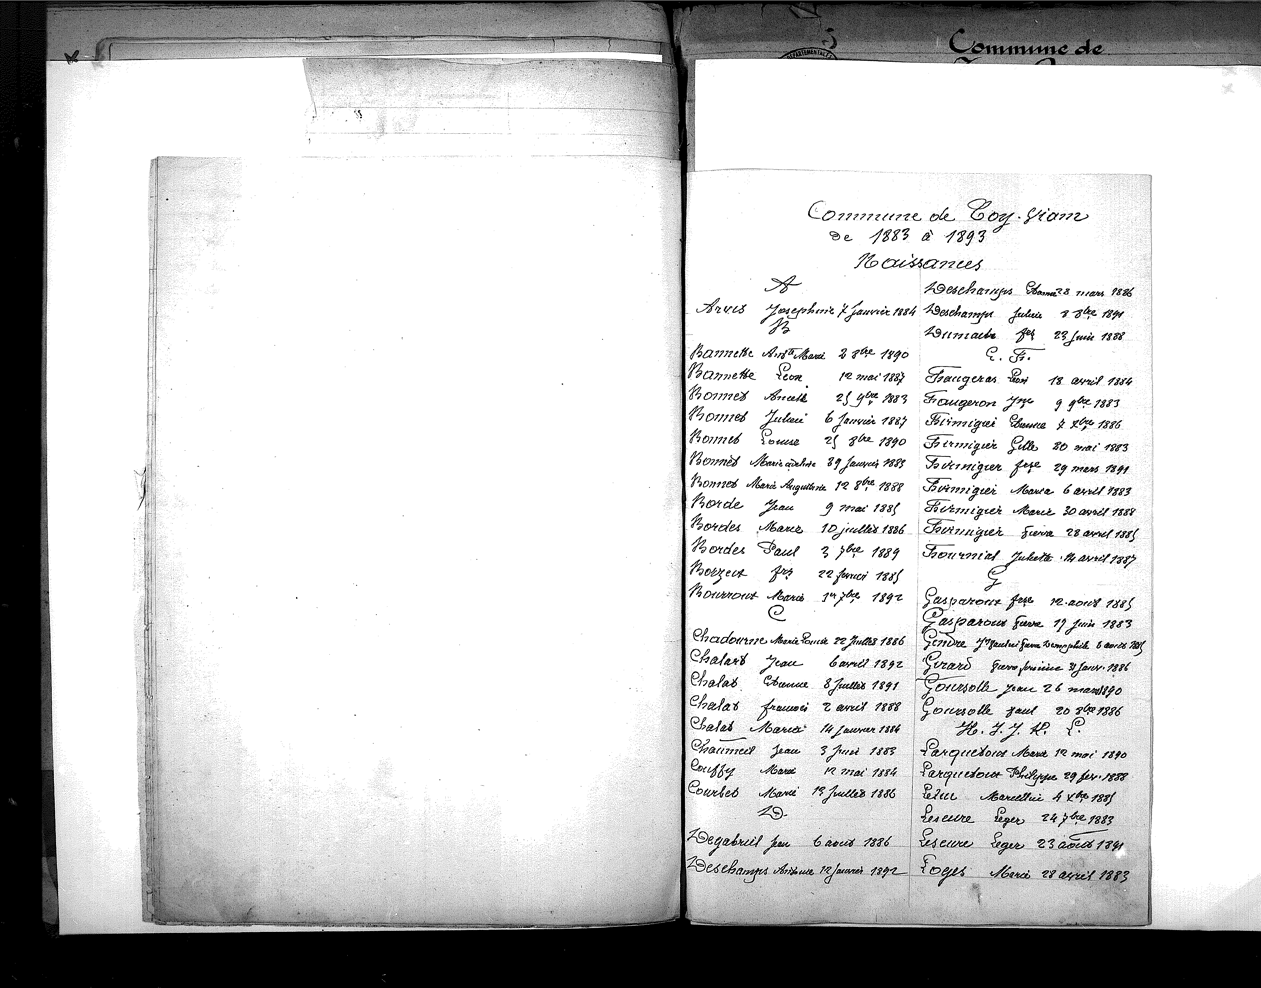 Commune de
DÉPARTEMENTALES
Commune de Toy-Viam
De 1883 à 1893
Naissances
A
Arvis Josephine 7 Janvier 1884
B
Bannette Antte Marie 2 8bre 1890
Bannette Léon 12 mai 1887
Bonnet 25 9bre 1883
Bonnet Julien 6 Janvier 1887
Bonnet Louise 25 8bre 1890
Bonnet Marie 29 Janvier 1885
Bonnet Marie Augustine 12 8bre 1888
Borde Jean 9 mai 1885
Bordes Marie 10 juillet 1886
Bordes Paul 3 7bre 1889
Borzeix frs 22 fevrier 1885
Bourroux Marie 1er 7bre 1892
C
Chadourne Marie Louise 22 Juillet 1886
Chalard Jean 6 avril 1892
Chalat Etienne 8 Juillet 1891
Chalat francois 2 avril 1888
Chalat Maria 14 Janvier 1884
Chaumeil Jean 3 Juin 1883
Couffy Marie 12 mai 1884
Courbet Marie 13 Juillet 1886
D.
Degabriel Jean 6 août 1886
Deschamps Antoine 12 Janvier 1892
Deschamps Etienne 28 mars 1886
Deschamps Julien 8 8bre 1891
Dumaitre frs 23 Juin 1888
E. F.
Faugeras Léon 18 avril 1884
Faugeron 9 9bre 1883
Firmigier Etienne 7 Xbre 1886
Firmigier 20 mai 1883
Firmigier frse 29 mars 1891
Firmigier Maria 6 avril 1883
Firmigier Marie 30 avril 1888
Firmigier Pierre 28 avril 1885
Fournial Juliette 14 avril 1887
G
Gasparoux frse 12 août 1885
Gasparoux Pierre 17 Juin 1883
Gendre Pierre août
Girard Pierre 31 Janv. 1886
Goursolle Jean 26 mars 1890
Goursolle Paul 20 8bre 1886
H. I. J. K. L.
Larquetoux Marie 12 mai 1890
Larquetoux Philippe 29 fev. 1888
Marcellin 4 Xbre 1885
Lescure Leger 24 7bre 1883
Lescure Leger 23 août 1891
Loges Marie 28 avril 1883